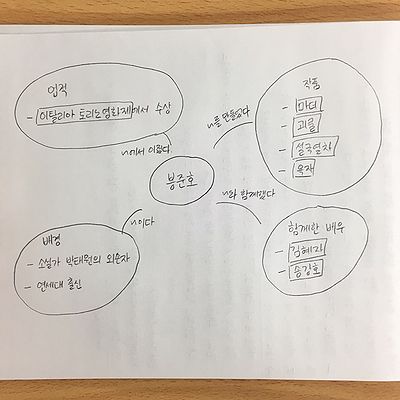 업적
- 이탈리아 토리노영화제에서 수상
~에서 이뤘다
작품
- 마더
- 괴물
- 설국열차
- 옥자
~를 만들었다
봉준호
~이다
배경
- 소설가 박태원의 외손자
- 연세대 출신
~와 함께했다
함께한 배우
- 김혜자
- 송강호